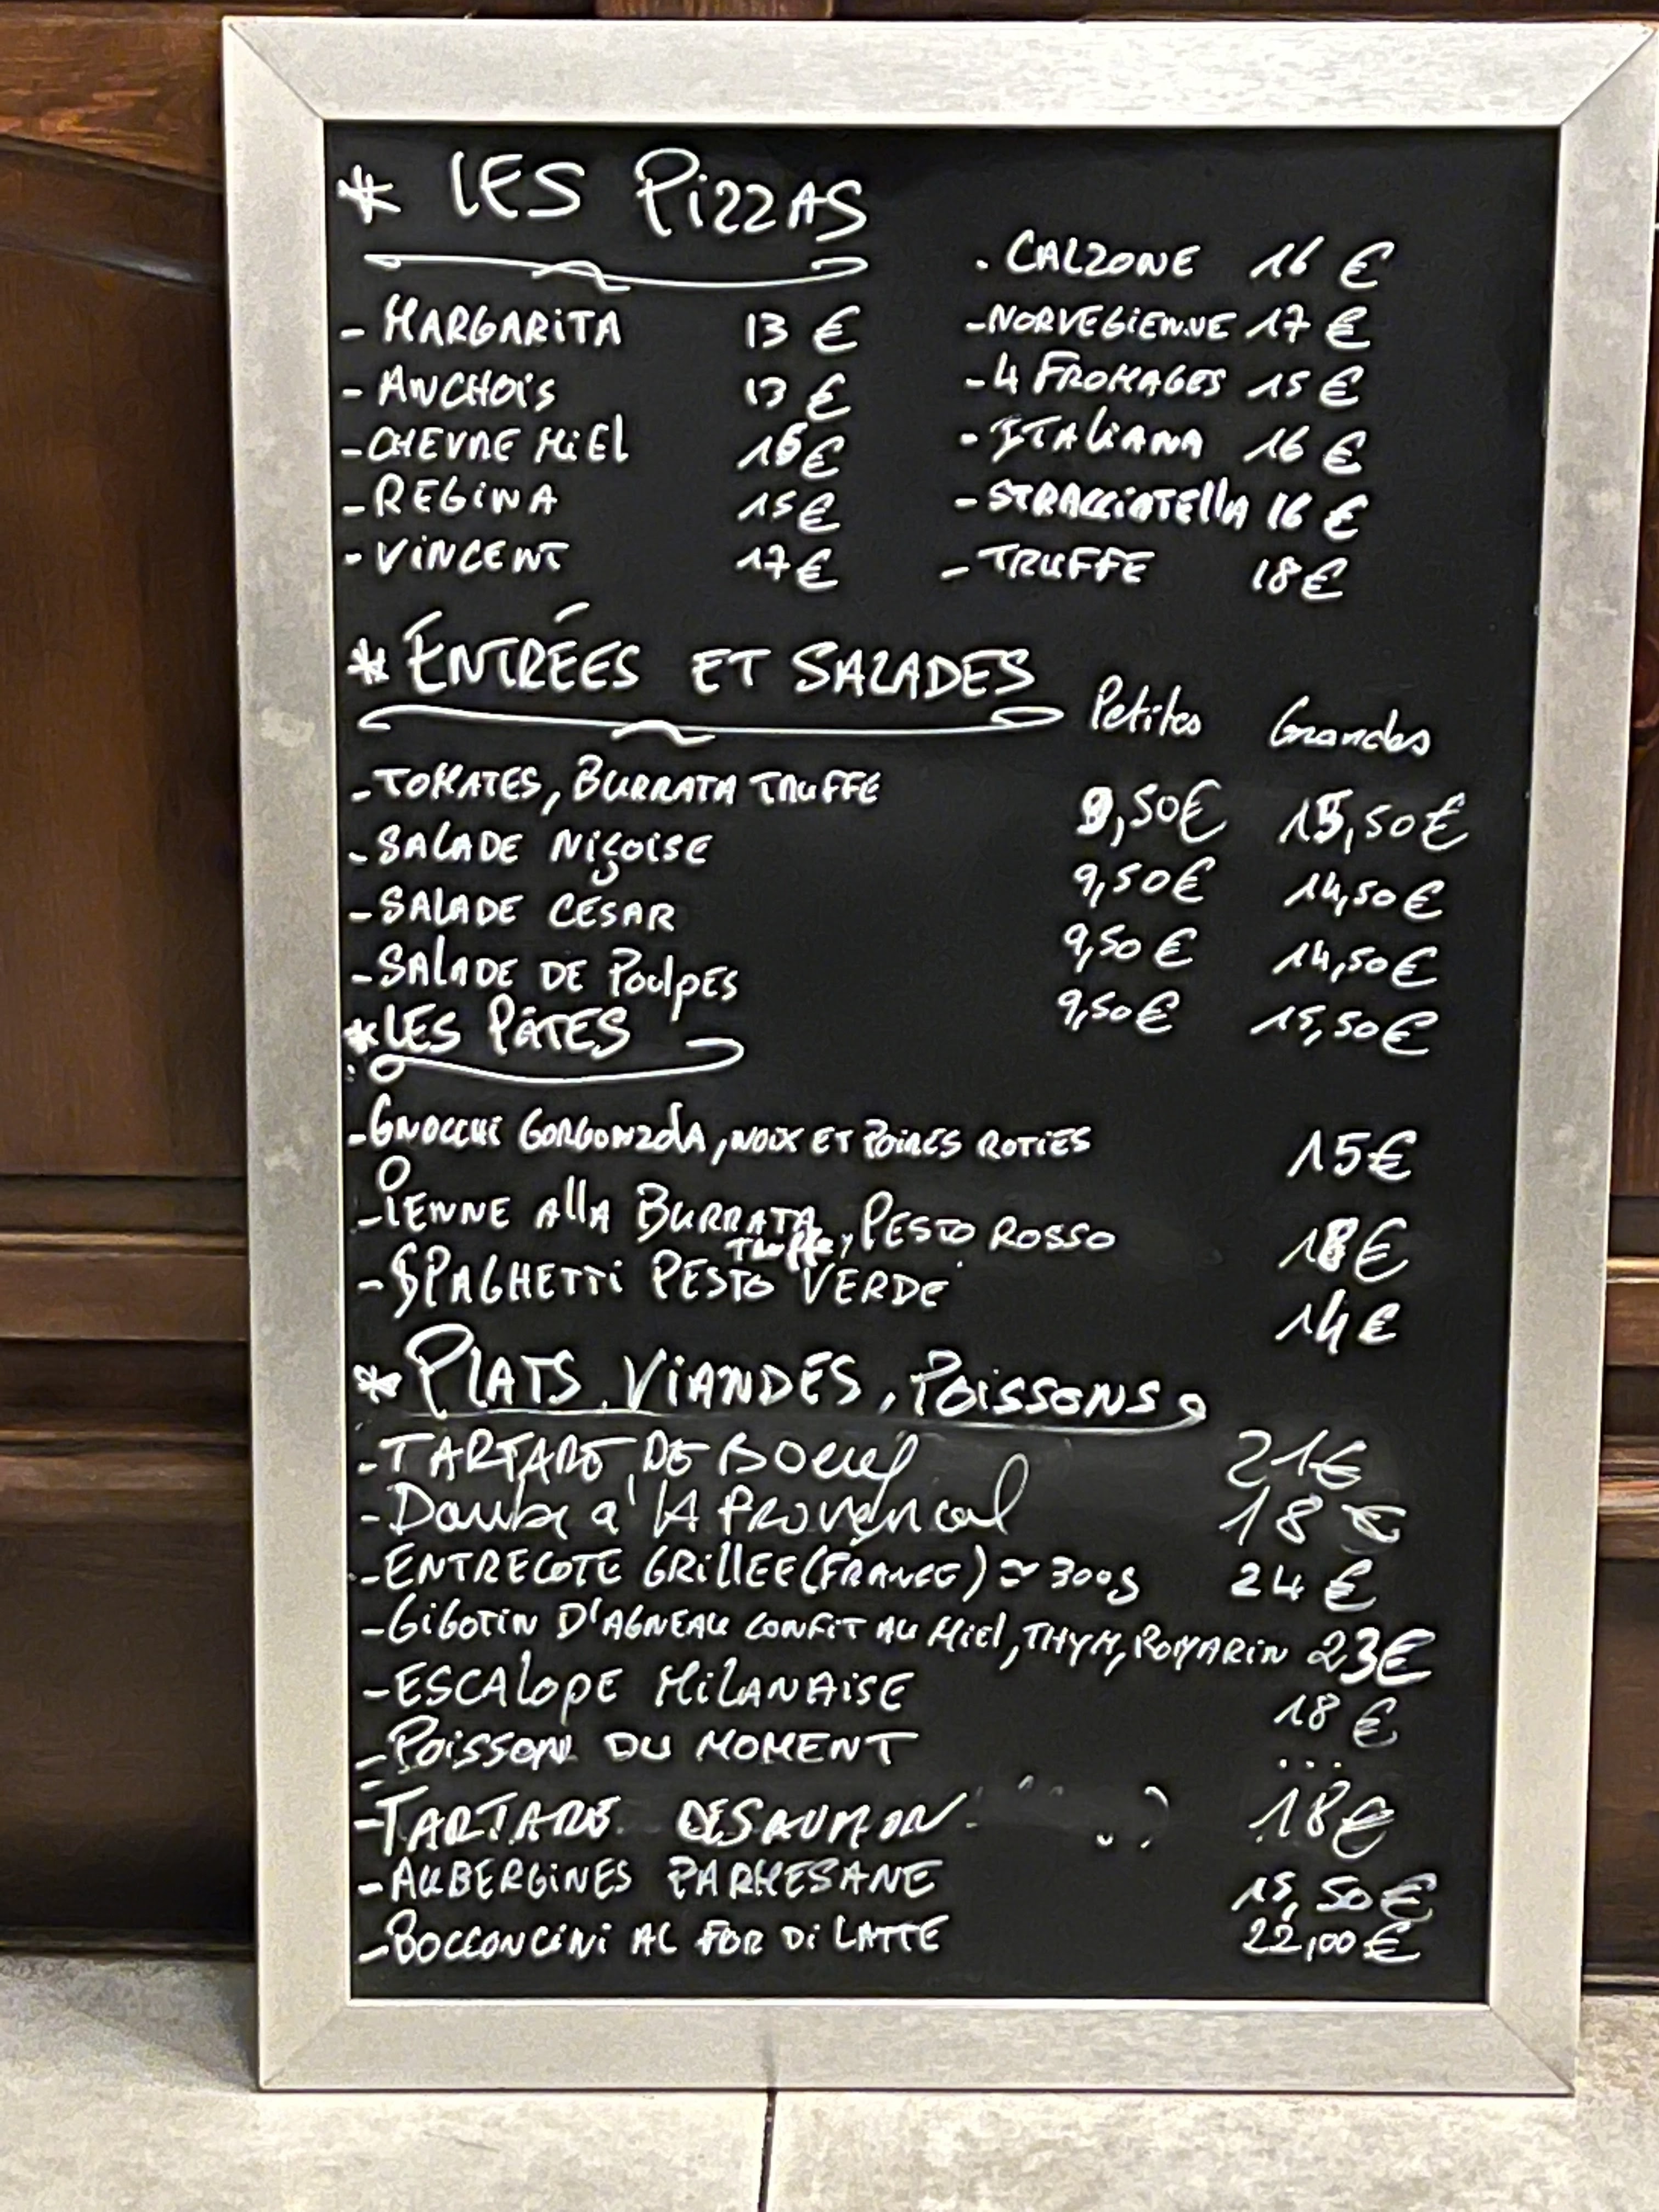 * LES PIZZAS
- MARGARITA 13 €
- ANCHOIS 13 €
- CHEVRE MIEL 16 €
- REGINA 15 €
- VINCENT 17 €
. CALZONE 16 €
- NORVEGIENNE 17 €
- 4 FROMAGES 15 €
- ITALIANA 16 €
- STRACCIATELLA 16 €
- TRUFFE 18 €
* ENTRÉES ET SALADES Petites Grandes
- TOMATES, BURRATA TRUFFE 9,50€ 15,50€
- SALADE NIÇOISE 9,50€ 14,50€
- SALADE CESAR 9,50€ 14,50€
- SALADE DE POULPES 9,50€ 15,50€
* LES PÂTES
- GNOCCHI GORGONZOLA, NOIX ET POIRES ROTIES 15€
- PENNE ALLA BURRATA Truffe, PESTO ROSSO 18€
- SPAGHETTI PESTO VERDE 14€
* PLATS VIANDES, POISSONS
- TARTARE DE BOEUF 21€
- Daube à LA PROVENCAL 18 €
- ENTRECOTE GRILLEE (FRANCE) ≃ 300g 24 €
- GIGOTIN D'AGNEAU CONFIT AU MIEL, THYM, ROMARIN 23€
- ESCALOPE MILANAISE 18 €
- POISSON DU MOMENT ...
- TARTARE DE SAUMON 18€
- AUBERGINES PARMESANE 15,50€
- BOCCONCINI AL FOR DI LATTE 22,00€